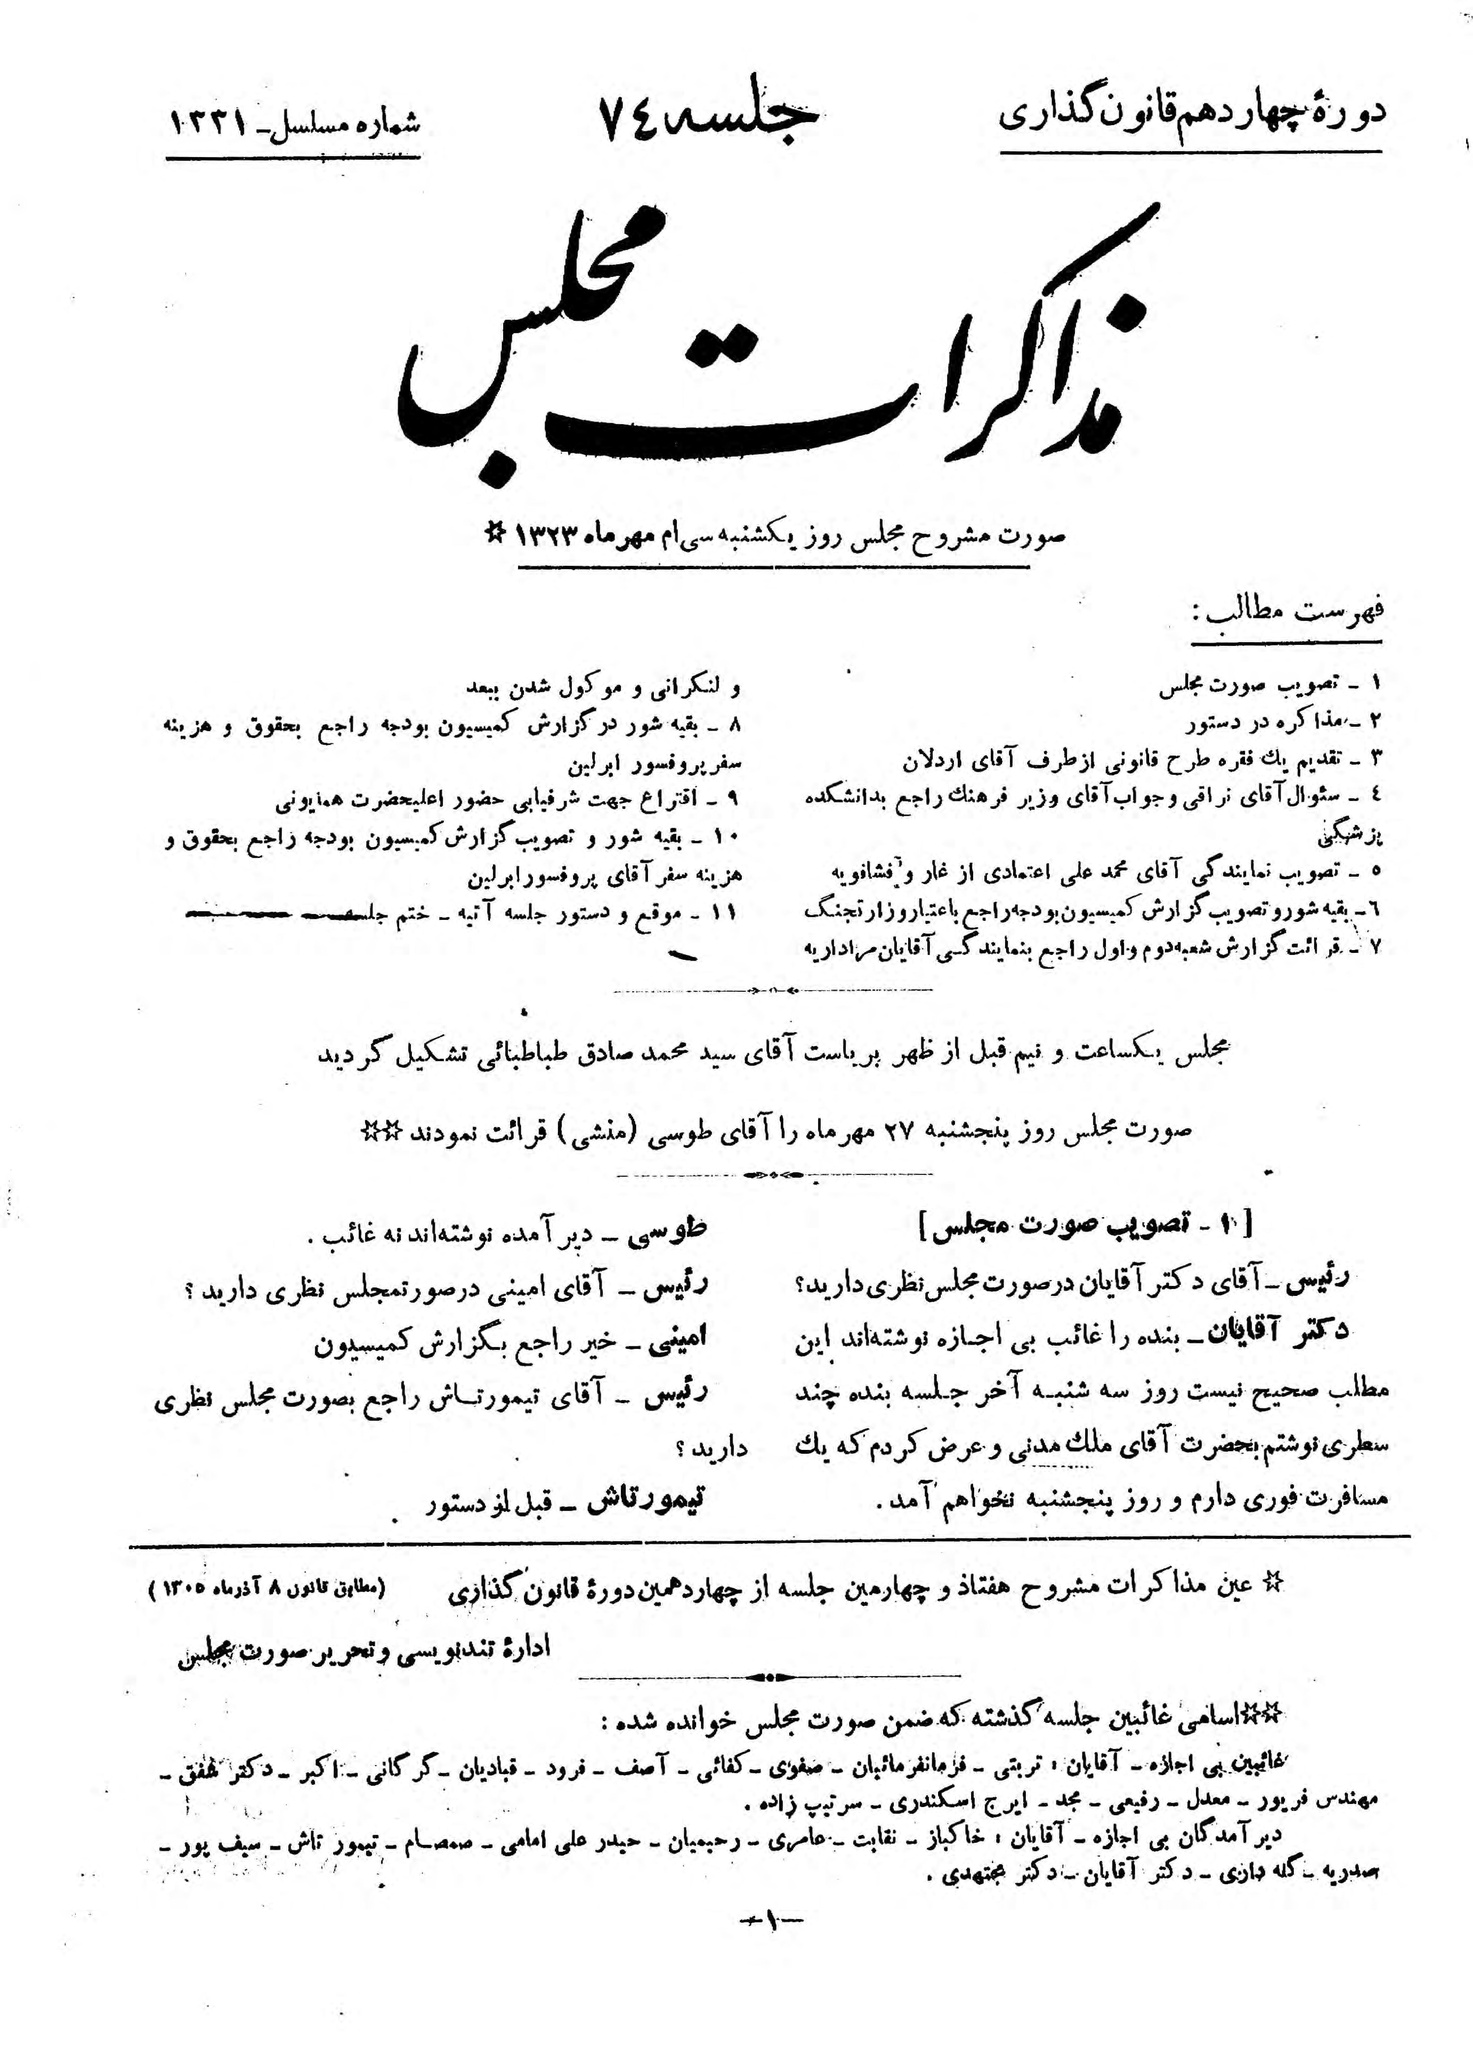 دورهٔ چهاردهم قانون گذاری
جلسه ۷٤
شماره مسلسل ـ ۱۳۳۱
مذاکرات مجلس
صورت مشروح مجلس روز یکشنبه سی‌ام مهرماه ۱۳۲۳ ☆
فهرست مطالب :
۱ ـ تصویب صورت مجلس
۲ ـ مذاکره در دستور
۳ ـ تقدیم یك فقره طرح قانونی از طرف آقای اردلان
٤ ـ سئوال آقای نراقی و جواب آقای وزیر فرهنك راجع بدانشکده
پزشگی
۵ ـ تصویب نمایندگی آقای محمد علی اعتمادی از غار و فشافویه
٦ ـ بقیه شور و تصویب گزارش کمیسیون بودجه راجع باعتبار وزارتجنگ
۷ ـ قرائت گزارش شعبه دوم و اول راجع بنمایندگی آقایان مراداریه
و لنکرانی و موکول شدن ببعد
۸ ـ بقیه شور در گزارش کمیسیون بودجه راجع بحقوق و هزینه
سفر پروفسور ابرلین
۹ ـ اقتراع جهت شرفیابی حضور اعلیحضرت همایونی
۱۰ ـ بقیه شور و تصویب گزارش کمیسیون بودجه راجع بحقوق و
هزینه سفر آقای پروفسور ابرلین
۱۱ ـ موقع و دستور جلسه آتیه ـ ختم جلسه
مجلس یکساعت و نیم قبل از ظهر بریاست آقای سید محمد صادق طباطبائی تشکیل گردید
صورت مجلس روز پنجشنبه ۲۷ مهرماه را آقای طوسی (منشی) قرائت نمودند ☆☆
[ ۱ ـ تصویب صورت مجلس ]
رئیس ـ آقای دکتر آقایان در صورت مجلس نظری دارید؟
دکتر آقایان ـ بنده را غائب بی اجازه نوشته‌اند این
مطلب صحیح نیست روز سه شنبه آخر جلسه بنده چند
سطری نوشتم بحضرت آقای ملك مدنی و عرض کردم که یك
مسافرت فوری دارم و روز پنجشنبه نخواهم آمد .
طوسی ـ دیر آمده نوشته‌اند نه غائب .
رئیس ـ آقای امینی در صورتمجلس نظری دارید ؟
امینی ـ خیر راجع بگزارش کمیسیون
رئیس ـ آقای تیمورتاش راجع بصورت مجلس نظری
دارید ؟
تیمورتاش ـ قبل از دستور
☆ عین مذاکرات مشروح هفتاد و چهارمین جلسه از چهاردهمین دورهٔ قانون گذاری (مطابق قانون ۸ آذرماه ۱۳۰۵)
ادارهٔ تندنویسی و تحریر صورت مجلس
☆☆ اسامی غائبین جلسه گذشته که ضمن صورت مجلس خوانده شده :
غائبین بی اجازه ـ آقایان : تربتی ـ فرمانفرمائیان ـ صفوی ـ کفائی ـ آصف ـ فرود ـ قبادیان ـ گرگانی ـ اکبر ـ دکتر شفق ـ
مهندس فریور ـ معدل ـ رفیعی ـ مجد ـ ایرج اسکندری ـ سرتیپ زاده .
دیر آمدگان بی اجازه ـ آقایان : خاکباز ـ نقابت ـ عامری ـ رحیمیان ـ حیدر علی امامی ـ صمصام ـ تیمور تاش ـ سیف پور ـ
صدریه ـ گله داری ـ دکتر آقایان ـ دکتر مجتهدی .
ـ۱ـ